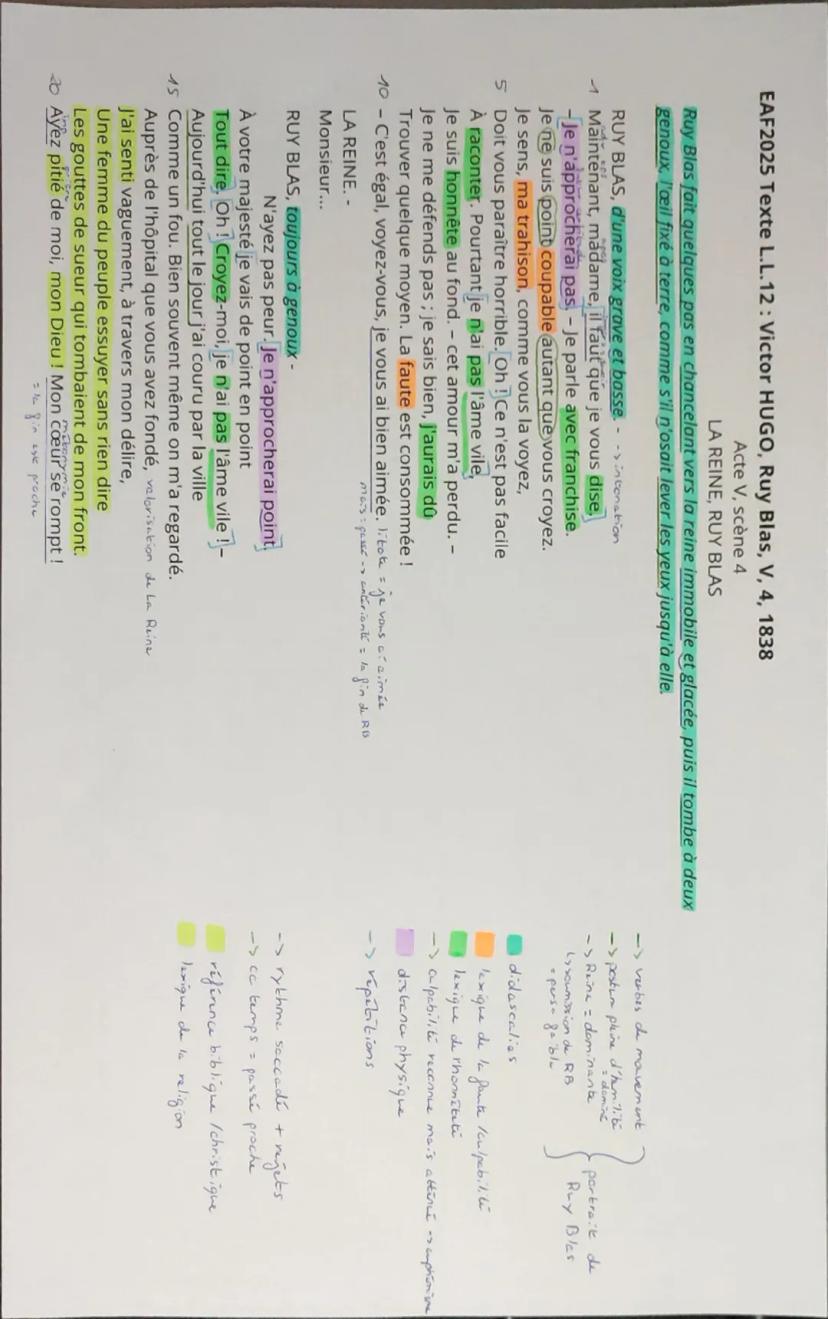 EAF2025 Texte L.L.12 : Victor HUGO, Ruy Blas, V, 4, 1838
Acte V, scène 4
LA REINE, RUY BLAS
Ruy Blas fait quelques pas en chancelant vers la reine immobile et glacée, puis il tombe à deux
genoux, l'œil fixé à terre, comme s'il n'osait lever les yeux jusqu'à elle.
RUY BLAS, d'une voix grave et basse. - -> intonation
1 Maintenant, madame, il faut que je vous dise,
- Je n'approcherai pas. - Je parle avec franchise.
Je ne suis point coupable autant que vous croyez.
Je sens, ma trahison, comme vous la voyez,
5 Doit vous paraître horrible. Oh ! Ce n'est pas facile
À raconter. Pourtant je n'ai pas l'âme vile,
Je suis honnête au fond. - cet amour m'a perdu. -
Je ne me défends pas ; je sais bien, j'aurais dû
Trouver quelque moyen. La faute est consommée !
10 - C'est égal, voyez-vous, je vous ai bien aimée. litote = je vous ai aimée
mais : passé -> antériorité = la fin de RB
LA REINE. -
Monsieur...
RUY BLAS, toujours à genoux -
N'ayez pas peur. Je n'approcherai point.
À votre majesté je vais de point en point
Tout dire. Oh ! Croyez-moi, je n'ai pas l'âme vile ! -
Aujourd'hui tout le jour j'ai couru par la ville
15 Comme un fou. Bien souvent même on m'a regardé.
Auprès de l'hôpital que vous avez fondé, valorisation de La Reine
J'ai senti vaguement, à travers mon délire,
Une femme du peuple essuyer sans rien dire
Les gouttes de sueur qui tombaient de mon front.
20 Ayez pitié de moi, mon Dieu ! Mon cœur se rompt !
métonymie
= la fin est proche
-> verbes de mouvement
-> posture pleine d'humilité
= dominé
-> Reine = dominante
↳ soumission de RB
= perso faible
portrait de
Ruy Blas
didascalies
lexique de la faute/culpabilité
lexique de l'honnêteté
-> culpabilité reconnue mais atténué -> euphémisme
distance physique
-> répétitions
-> rythme saccadé + rejets
-> cc temps = passé proche
référence biblique/christique
lexique de la religion